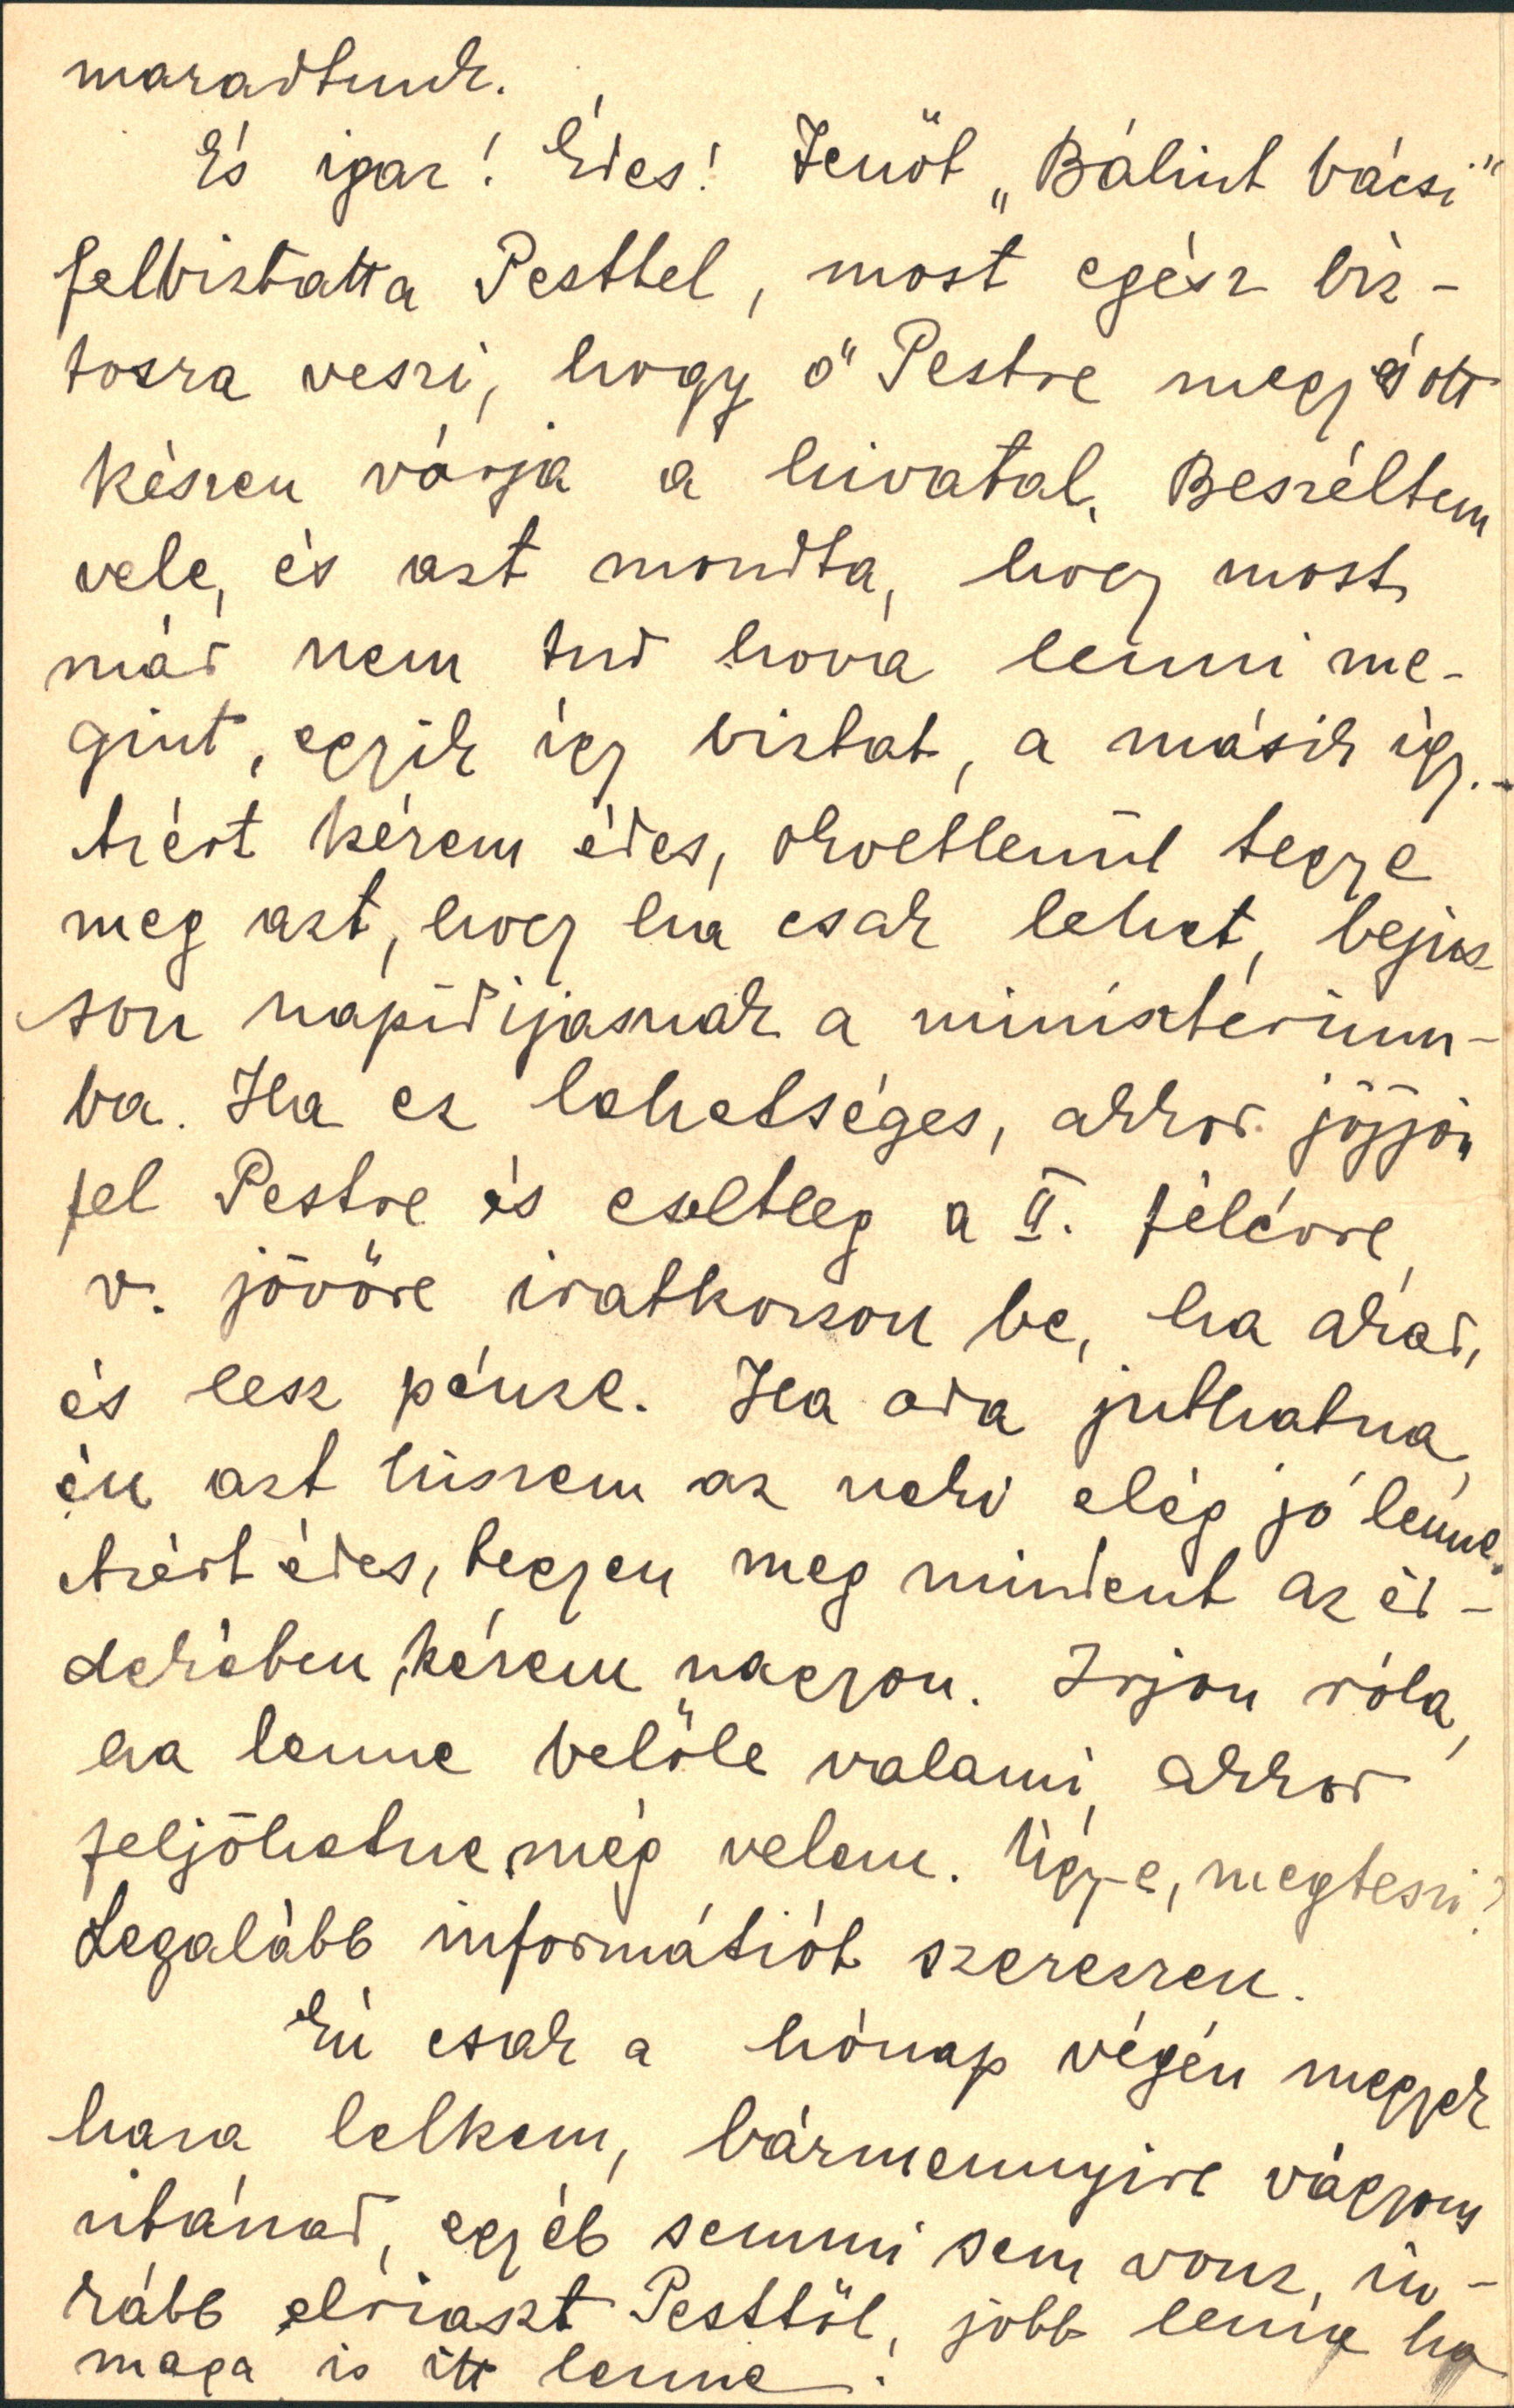 maradtunk.
És igaz! Édes! Jenőt „Bálint bácsi"
felbiztatta Pesttel, most egész biz-
tosra veszi, hogy ő Pestre megy és ott
készen várja a hivatal. Beszéltem
vele, és azt mondta, hogy most
már nem tud hová lenni me-
gint, egyik így biztat, a másik így.-
Azért kérem édes, okvetlenül tegye
meg azt, hogy ha csak lehet, bejus-
son napidijasnak a ministerium-
ba. Ha ez lehetséges, akkor jöjjön
fel Pestre és esetleg a II. félévre,
v. jövőre iratkozzon be, ha akar,
és lesz pénze. Ha oda juthatna,
én azt hiszem az neki elég jó lenne.
Azért édes, tegyen meg mindent az ér-
dekében, kérem nagyon. Irjon róla,
ha lenne belőle valami, akkor
feljöhetne még velem. Ugy-e, megteszi?
Legalább informátiót szerezzen.
Én csak a hónap végén megyek
haza lelkem, bármennyire vágyom
utánad, egyéb semmi sem vonz, in-
kább elriaszt Pesttől, jobb lenne ha
maga is itt lenne!